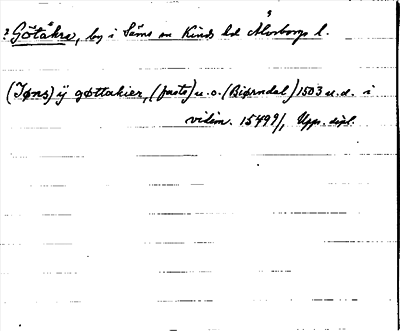 ? Götåkra, by i Säms sn Kinds hd Älvsborgs l.
(Jøns) ÿ gøttakier, (fasta) u.o. (Biørndal) 1503 u.d. i
vidim. 1549 9/1, Upps. dipl.